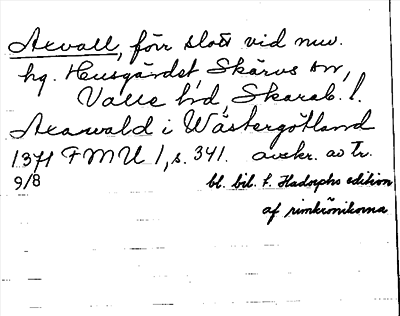 Axvall, förr slott vid nuv.
hg. Husgärdet, Skärvs sn,
Valle hd, Skarab. l.
Axawald i Wästergötland
1371 FMU 1, s. 341. avskr. av tr.
9/8 bl. bil. t. Hadorphs edition
af rimkrönikorna